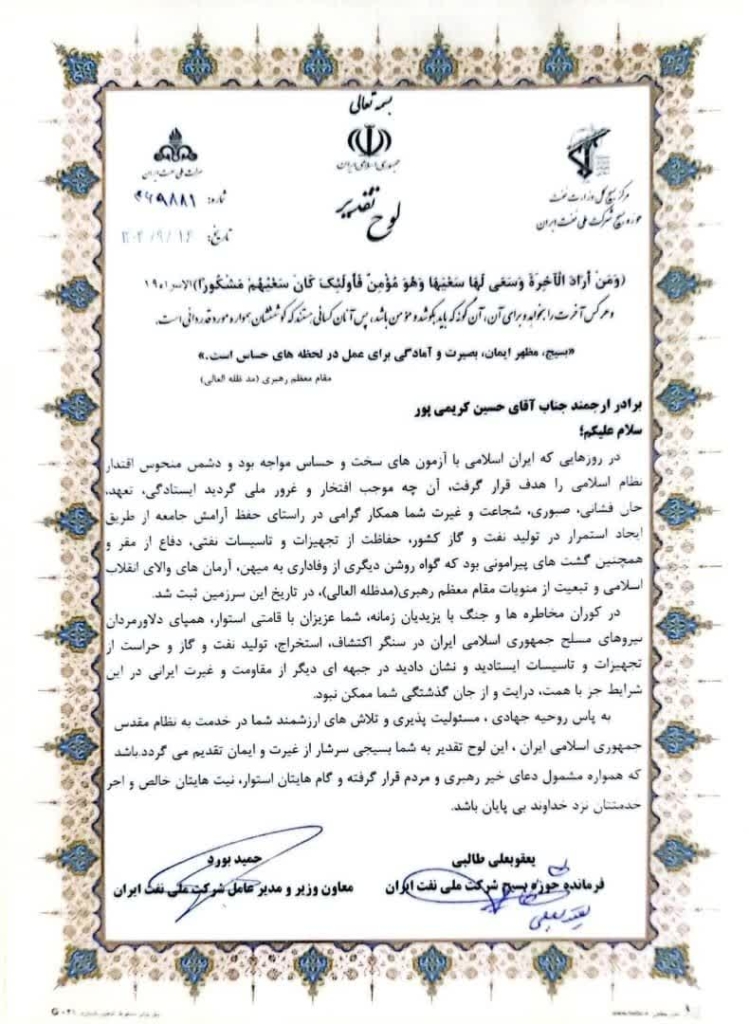 بسمه تعالی
جمهوری اسلامی ایران
شرکت ملی نفت ایران
مرکز بسیج کل وزارت نفت
حوزه بسیج شرکت ملی نفت ایران
شماره:
تاریخ:
لوح تقدیر
(وَمَنْ أَرَادَ الْآخِرَةَ وَسَعَى لَهَا سَعْيَهَا وَهُوَ مُؤْمِنٌ فَأُولَئِكَ كَانَ سَعْيُهُمْ مَشْكُورًا)الاسراء ۱۹
و هر کس آخرت را بخواهد و برای آن، آن گونه که باید بکوشد و مؤمن باشد، پس آنان کسانی هستند که کوششان همواره مورد قدردانی است.
«بسیج، مظهر ایمان، بصیرت و آمادگی برای عمل در لحظه های حساس است.»
مقام معظم رهبری (مد ظله العالی)
برادر ارجمند جناب آقای حسین کریمی پور
سلام علیکم؛
در روزهایی که ایران اسلامی با آزمون های سخت و حساس مواجه بود و دشمن منحوس اقتدار
نظام اسلامی را هدف قرار گرفت، آن چه موجب افتخار و غرور ملی گردید ایستادگی، تعهد،
جان فشانی، صبوری، شجاعت و غیرت شما همکار گرامی در راستای حفظ آرامش جامعه از طریق
ایجاد استمرار در تولید نفت و گاز کشور، حفاظت از تجهیزات و تاسیسات نفتی، دفاع از مقر و
همچنین گشت های پیرامونی بود که گواه روشن دیگری از وفاداری به میهن، آرمان های والای انقلاب
اسلامی و تبعیت از منویات مقام معظم رهبری(مدظله العالی)، در تاریخ این سرزمین ثبت شد.
در کوران مخاطره ها و جنگ با یزیدیان زمانه، شما عزیزان با قامتی استوار، همپای دلاورمردان
نیروهای مسلح جمهوری اسلامی ایران در سنگر اکتشاف، استخراج، تولید نفت و گاز و حراست از
تجهیزات و تاسیسات ایستادید و نشان دادید در جبهه ای دیگر از مقاومت و غیرت ایرانی در این
شرایط جز با همت، درایت و از جان گذشتگی شما ممکن نبود.
به پاس روحیه جهادی ، مسئولیت پذیری و تلاش های ارزشمند شما در خدمت به نظام مقدس
جمهوری اسلامی ایران ، این لوح تقدیر به شما بسیجی سرشار از غیرت و ایمان تقدیم می گردد.باشد
که همواره مشمول دعای خیر رهبری و مردم قرار گرفته و گام هایتان استوار، نیت هایتان خالص و اجر
خدمتتان نزد خداوند بی پایان باشد.
یعقوبعلی طالبی
فرمانده حوزه بسیج شرکت ملی نفت ایران
حمید بورد
معاون وزیر و مدیر عامل شرکت ملی نفت ایران